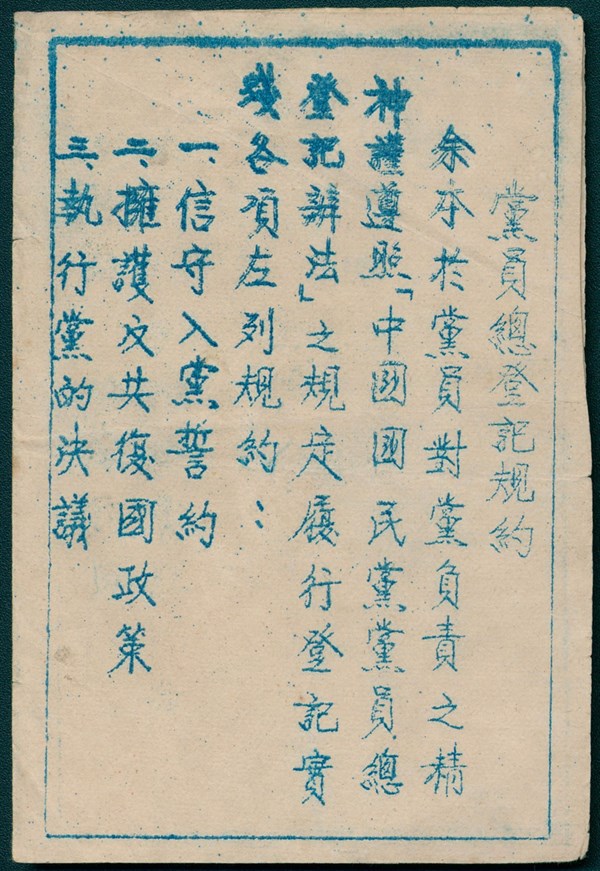 黨員總登記規約
余本於黨員對黨負責之精
神謹遵照「中國國民黨黨員總
登記辦法」之規定履行登記實
踐各項左列規約：
一、信守入黨誓約
二、擁護反共復國政策
三、執行黨的決議